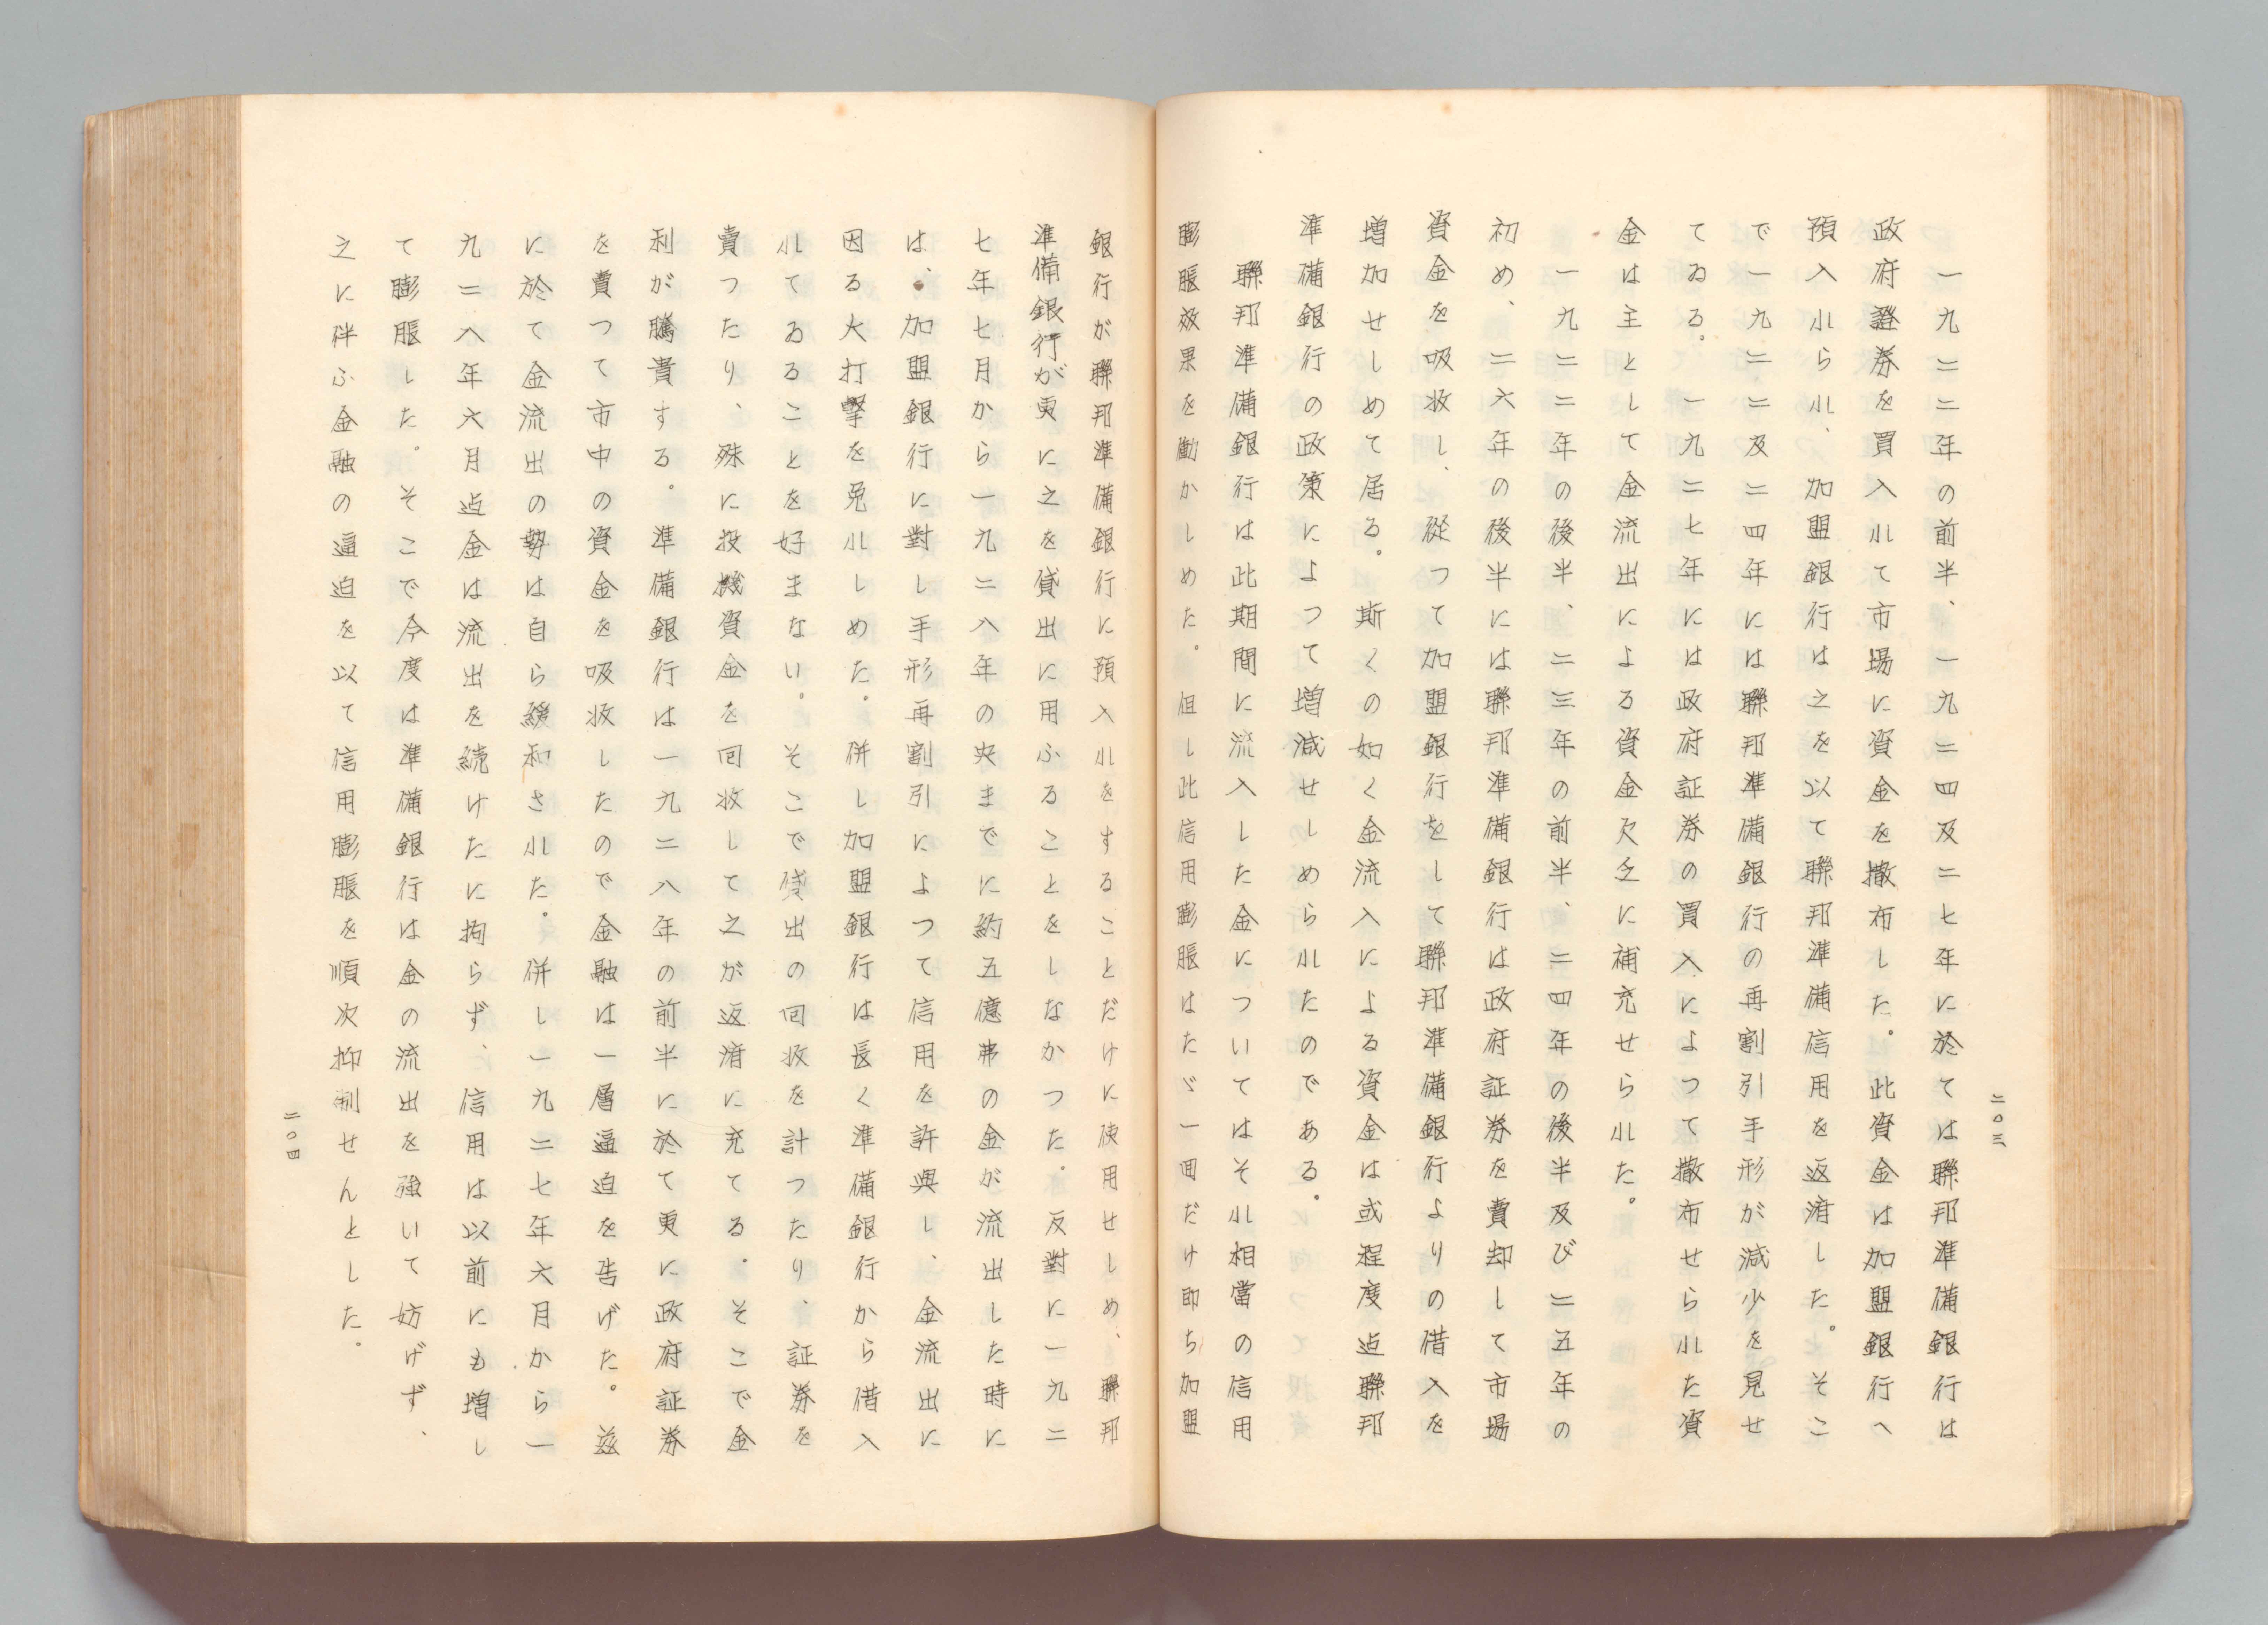 二〇三
一九二二年の前半、一九二四及二七年に於ては聯邦準備銀行は
政府證券を買入れて市場に資金を撒布した。此資金は加盟銀行へ
預入れられ、加盟銀行は之を以て聯邦準備信用を返済した。そこ
で一九二二及二四年には聯邦準備銀行の再割引手形が減少を見せ
てゐる。一九二七年には政府証券の買入によつて撒布せられた資
金は主として金流出による資金欠乏に補充せられた。
一九二二年の後半、二三年の前半、二四年の後半及び二五年の
初め、二六年の後半には聯邦準備銀行は政府証券を賣却して市場
資金を吸收し、從つて加盟銀行をして聯邦準備銀行よりの借入を
増加せしめて居る。斯くの如く金流入による資金は或程度迠聯邦
準備銀行の政策によつて増減せしめられたのである。
聯邦準備銀行は此期間に流入した金についてはそれ相當の信用
膨脹效果を働かしめた。但し此信用膨脹はたゞ一回だけ即ち加盟
銀行が聯邦準備銀行に預入れをすることだけに使用せしめ、聯邦
準備銀行が更に之を貸出に用ふることをしなかつた。反對に一九二
七年七月から一九二八年の央までに約五億弗の金が流出した時に
は、加盟銀行に對し手形再割引によつて信用を許與し、金流出に
因る大打撃を免れしめた。併し加盟銀行は長く準備銀行から借入
れてゐることを好まない。そこで貸出の回收を計つたり、証券を
賣つたり、殊に投機資金を回收して之が返済に充てる。そこで金
利が騰貴する。準備銀行は一九二八年の前半に於て更に政府証券
を賣つて市中の資金を吸收したので金融は一層逼迫を告げた。茲
に於て金流出の勢は自ら緩和された。併し一九二七年六月から一
九二八年六月迠金は流出を続けたに拘らず、信用は以前にも増し
て膨脹した。そこで今度は準備銀行は金の流出を強いて妨げず、
之に伴ふ金融の逼迫を以て信用膨脹を順次抑制せんとした。
二〇四